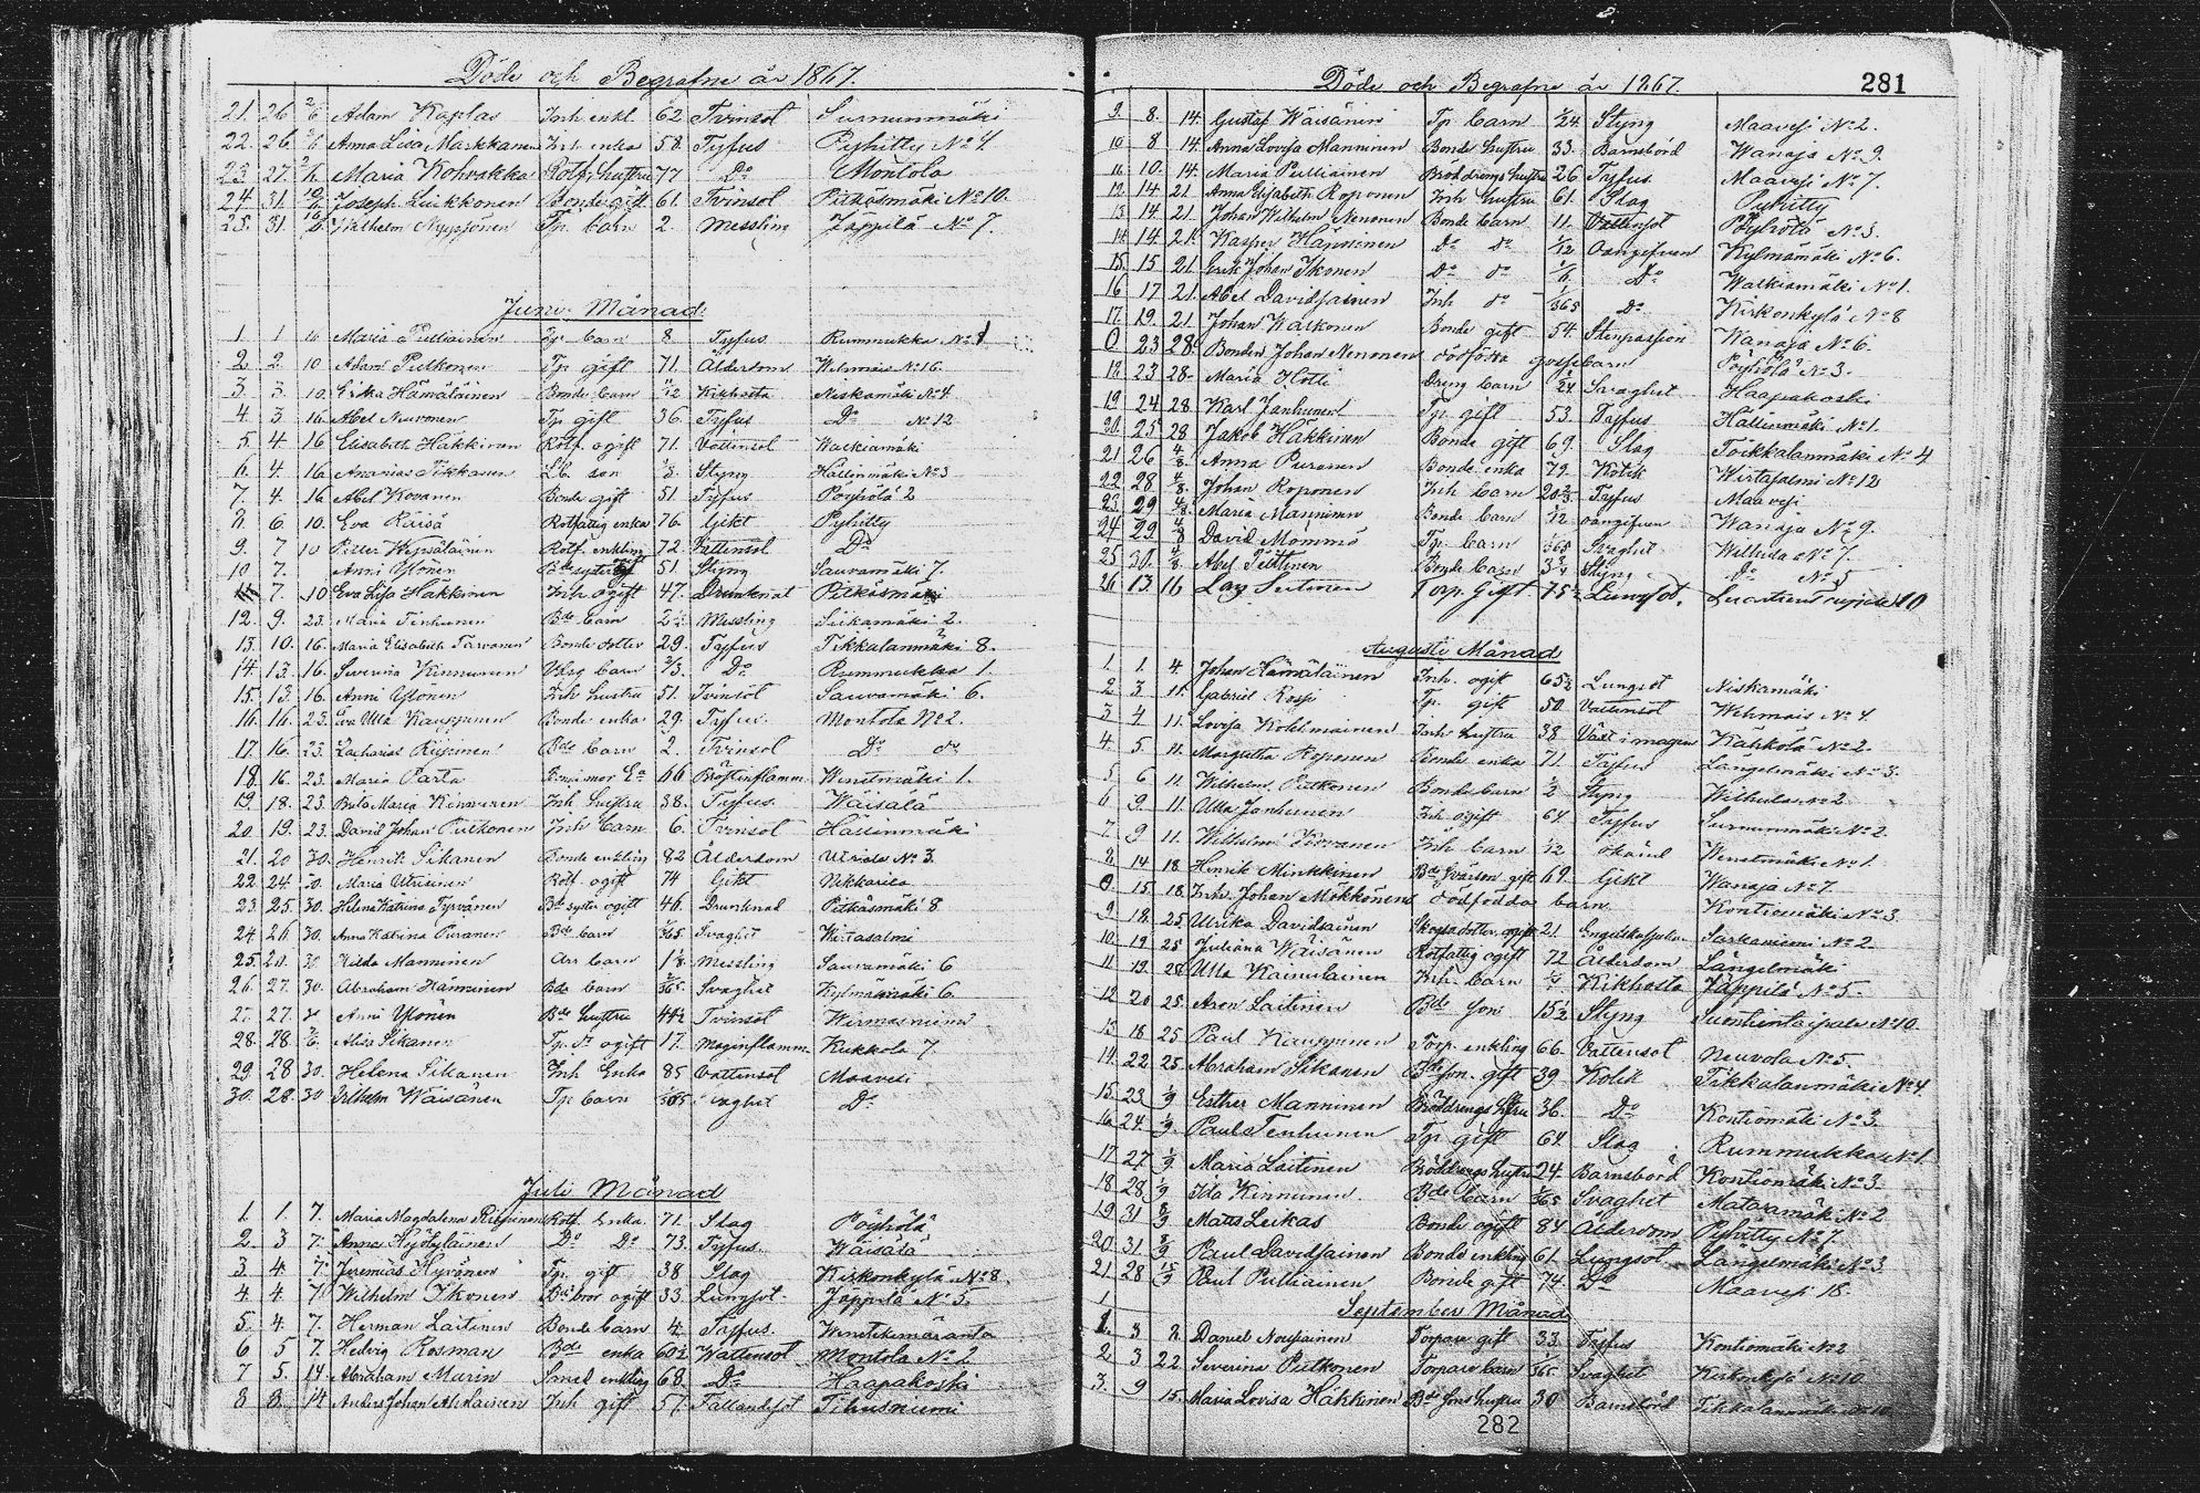 Döde och Begrafne år 1867.
21. 26 2/6 Adam Kaplas Inh enkl. 62 Tvinsot Surnumäki
22. 26. 2/6 Anna Lisa Markkanen Inh enka 58. Tyfus Pyhitty No 4
23. 27. 2/6 Maria Kohvakka Rotf. hustru 77 Do Montola
24 31. 10/6 Joseph Luikkonen Bonde gift 61. Tvinsot Pitkäsmäki No 10.
25. 31. 16/6 Wilhelm Nyyssönen Tp. barn 2. Messling Jäppilä No 7.
Juni Månad.
1 1 16 Maria Pulliainen Tp barn 8 Tyfus Rummukka No 1
2 2. 10 Adam Pulkonen Tp gift 71. Ålderdom Wehmais No 16.
3. 3. 10. Erika Hämäläinen Bonde barn 11/12 Kikhosta Niskamäki No 4
4. 3 16. Abel Nuvonen Tp gift 36. Tyfus Do No 12
5. 4. 16 Elisabeth Häkkinen Rotf. ogift 71. Vattensot Walkiamäki
6. 4. 16 Ananias Tikkanen Lb. son Styng Hällinmäki No 3
7. 4. 16 Abel Kovanen Bonde gift 51. Tyfus Pöyhölä 2
8. 6. 10. Eva Räisä Rotfattig enka 76. Gikt Pyhitty
9. 7 10 Petter Wepsäläinen Rotf. enkling 72. Vattensot Do
10 7. Anni Ylönen Bde syster gift 51 Styng Sauvamäki 7.
11 7. 10 Eva Lisa Häkkinen Inh ogift 47. Drunknat Pitkäsmäki
12. 9. 23. Maria Tenhunen Bde barn 2 1/2 Messling Siikamäki 2.
13. 10. 16. Maria Elisabeth Tarvonen Bonde dotter 29. Tyfus Tikkalanmäki 8.
14. 13. 16. Severina Kinnunen barn 2/3. Do Rummukka 1.
15. 13. 16. Anni Ylönen Inh hustru 51. Tvinsot Sauvamäki 6.
16. 16. 23. Eva Ulla Kauppinen Bonde enka 29. Tyfus. Montola No 2.
17. 16. 23. Zacharias Riipinen Bde barn 2. Tvinsot Do do
18. 16. 23. Maria Parta 66 Bröstinflamm. Wenetmäki 1.
19. 18. 23. Brita Maria Kinnunen Inh hustru 38. Tyfus. Wäisälä
20. 19. 23. David Johan Pulkonen Inh barn 6. Tvinsot Hällinmäki
21. 20 30. Henrik Sikanen Bonde enkling 82 Ålderdom Utriala No 3.
22. 24. 30. Maria Utriainen Rotf. ogift 74 Gikt Nikkarila
23. 25. 30. Helena Katrina Tyrvänen Bde syster ogift 46. Drunknad Pitkäsmäki 8
24. 26 30. Anna Katrina Puranen Bde barn /365 Svaghet Wirtasalmi
25. 20. 30 Hilda Manninen Arr barn Messling Sauvamäki 6
26. 27. 30. Abraham Hänninen Bde barn /365. Svaghet Kylmämäki 6.
27. 27. 30 Anni Ylönen Bde hustru 44 1/2 Tvinsot Wirmasniemi
28. 28. Alisa Sikanen Tp. dr ogift 17. Maginflamm. Kukkola 7.
29. 28 30. Helena Sikanen Inh Enka 85 Vattensot Maavesi
30. 28. 30 Vilhelm Wäisänen Tp barn /365 Svaghet Do
Juli Månad
1. 1. 7. Maria Magdalena Riipinen Rotf. Enka. 71. Slag Pöyhölä
2. 3 7. Anna Hyötyläinen Do Do 73. Tyfus. Wäisälä
3. 4. 7. Jeremias Hyvönen Tp. gift 38 Slag Kirkonkylä No 8.
4. 4. 7. Wilhelm Ikonen Bde bror ogift 33. Lungsot. Jäppilä No 5.
5. 4. 7. Herman Laitinen Bonde barn 4. Tyfus. Wenetekemäranta
6 5 7. Hedvig Rosman Bde enka 60 1/2 Wattensot Montola No 2
7 5. 14. Abraham Murin Smed enkling 68. Do Haapakoski
8 8. 14 Anders Johan Aholainen Inh gift 57. Fallandesot Tihusniemi
Döde och Begrafne år 1867. 281
9. 8. 14. Gustaf Wäisänen Tp barn /24 Styng Maavesi No 2.
10 8 14. Anna Lovisa Manninen Bonde hustru 33. Barnsbörd Wanaja No 9.
11. 10. 14. Maria Pulliainen Bröddrengs hustru 26 Tyfus Maavesi No 7.
12. 14 21 Anna Elisabeth Roponen Inh hustru 61. Slag Pyhitty
13 14. 21. Johan Wilhelm Nenonen Bonde barn 11. Vattensot Pöyhölä No 3.
14. 14 21. Kasper Hänninen Do do /12 Oangifven Kylmämäki No 6.
15. 15 21. Erik Johan Ikonen Do do Do Walkiamäki No 1.
16 17 21. Abel Davidsainen Inh do /365 Do Kirkonkylä No 8
17. 19. 21. Johan Karkonen Bonde gift 54. Stenpassion Wanaja No 6.
0 23 28. Bonden Johan Nenonens dödfödda gossebarn Pöyhölä No 3.
18. 23 28. Maria Hotti Dreng barn /24 Svaghet Haapakoski
19 24 28 Karl Janhunen Tp. gift 53. Tyfus Hällinmäki No 1.
20. 25 28 Jakob Häkkinen Bonde gift 69. Slag Toikkalanmäki No 4
21 26 4/8 Anna Puranen Bonde enka 79. Kolik Wirtasalmi No 12
22. 28 4/8. Johan Roponen Inh barn Tyfus Maavesi
23 29 4/8. Maria Manninen Bonde barn /12 oangifven Wanaja No 9.
24 29 4/8 David Mömmö Tp. barn /365 Svaghet Wilhula No 7.
25 30. 4/8. Abel Pölttinen Bonde barn Styng Do No 5
26 13. 16 Lars Sutinen Torp. Gift. 75 Lungsot. 10
Augusti Månad
1. 1. 4. Johan Hämäläinen Inh. ogift 65 1/2 Lungsot Niskamäki
2 3 11. Gabriel Rossi Tp. gift 50. Vattensot Wehmais No 4.
3 4 11. Lovisa Kohlmainen Inh hustru 38 Växt i magen Kähkölä No 2.
4. 5. 11. Margretha Roponen Bonde enka 71. Tyfus Längelmäki No 3.
5 6 11. Wilhelm Pulkonen Bonde barn Styng Wilhula No 2
6 9. 11. Ulla Janhunen Inh ogift 64 Tyfus Surnumäki No 2.
7. 9 11. Wilhelm Kovanen Inh barn /12 okänd Wenetmäki No 1.
8. 14 18 Henrik Minkkinen Bde Svärson gift 69. Gikt Wanaja No 7.
0. 15 18. Inh. Johan Mökkönens dödfödda barn Kontiomäki No 3.
9 18. 25. Ulrika Davidsainen ogift 21 Engelska sjukan Sarkaniemi No 2
10. 19 25 Juliana Wäisänen Rotfattig ogift 72 Ålderdom Längelmäki
11 19. 25 Ulla Kainulainen Inh. barn Kikhosta Jäppilä No 5.
12 20 25. Aron Laitinen Bde son 15 1/2 Styng No 10.
13 18 25 Paul Kauppinen Torp. enkling 66. Vattensot Neuvola No 5.
14. 22 25. Abraham Sikanen Bde son. gift 39. Kolik Tikkalanmäki No 4.
15. 23 1/9 Esther Manninen Bröddrengs hstru 36. Do Kontiomäki No 3.
16 24. 1/9. Paul Tenhunen Tp. gift 64 Slag Rummukka No 1.
17. 27. 1/9. Maria Laitinen Bröddrengs hustru 24. Barnsbörd Kontiomäki No 3
18 28. 1/9 Ida Kinnunen. Bde barn /365 Svaghet Mataramäki No 2
19 31 8/9 Matts Leikas Bonde ogift 84 Ålderdom Pyhitty No 7
20. 31. 8/9 Paul Davidsainen Bonde enkling 61. Lungsot Längelmäki No 3
21. 28 15/9 Paul Pulliainen Bonde gift 74. Do Maavesi 18.
September Månad
1. 3 8. Daniel Nousiainen Torpare gift 33. Tyfus Kontiomäki No 2
2. 3 22. Severina Pulkonen Torpare barn /365. Svaghet Kirkonkylä No 10
3. 9 15. Maria Lovisa Häkkinen Bde sons hustru 30 Barnsbörd Tikkalanmäki No 10
282